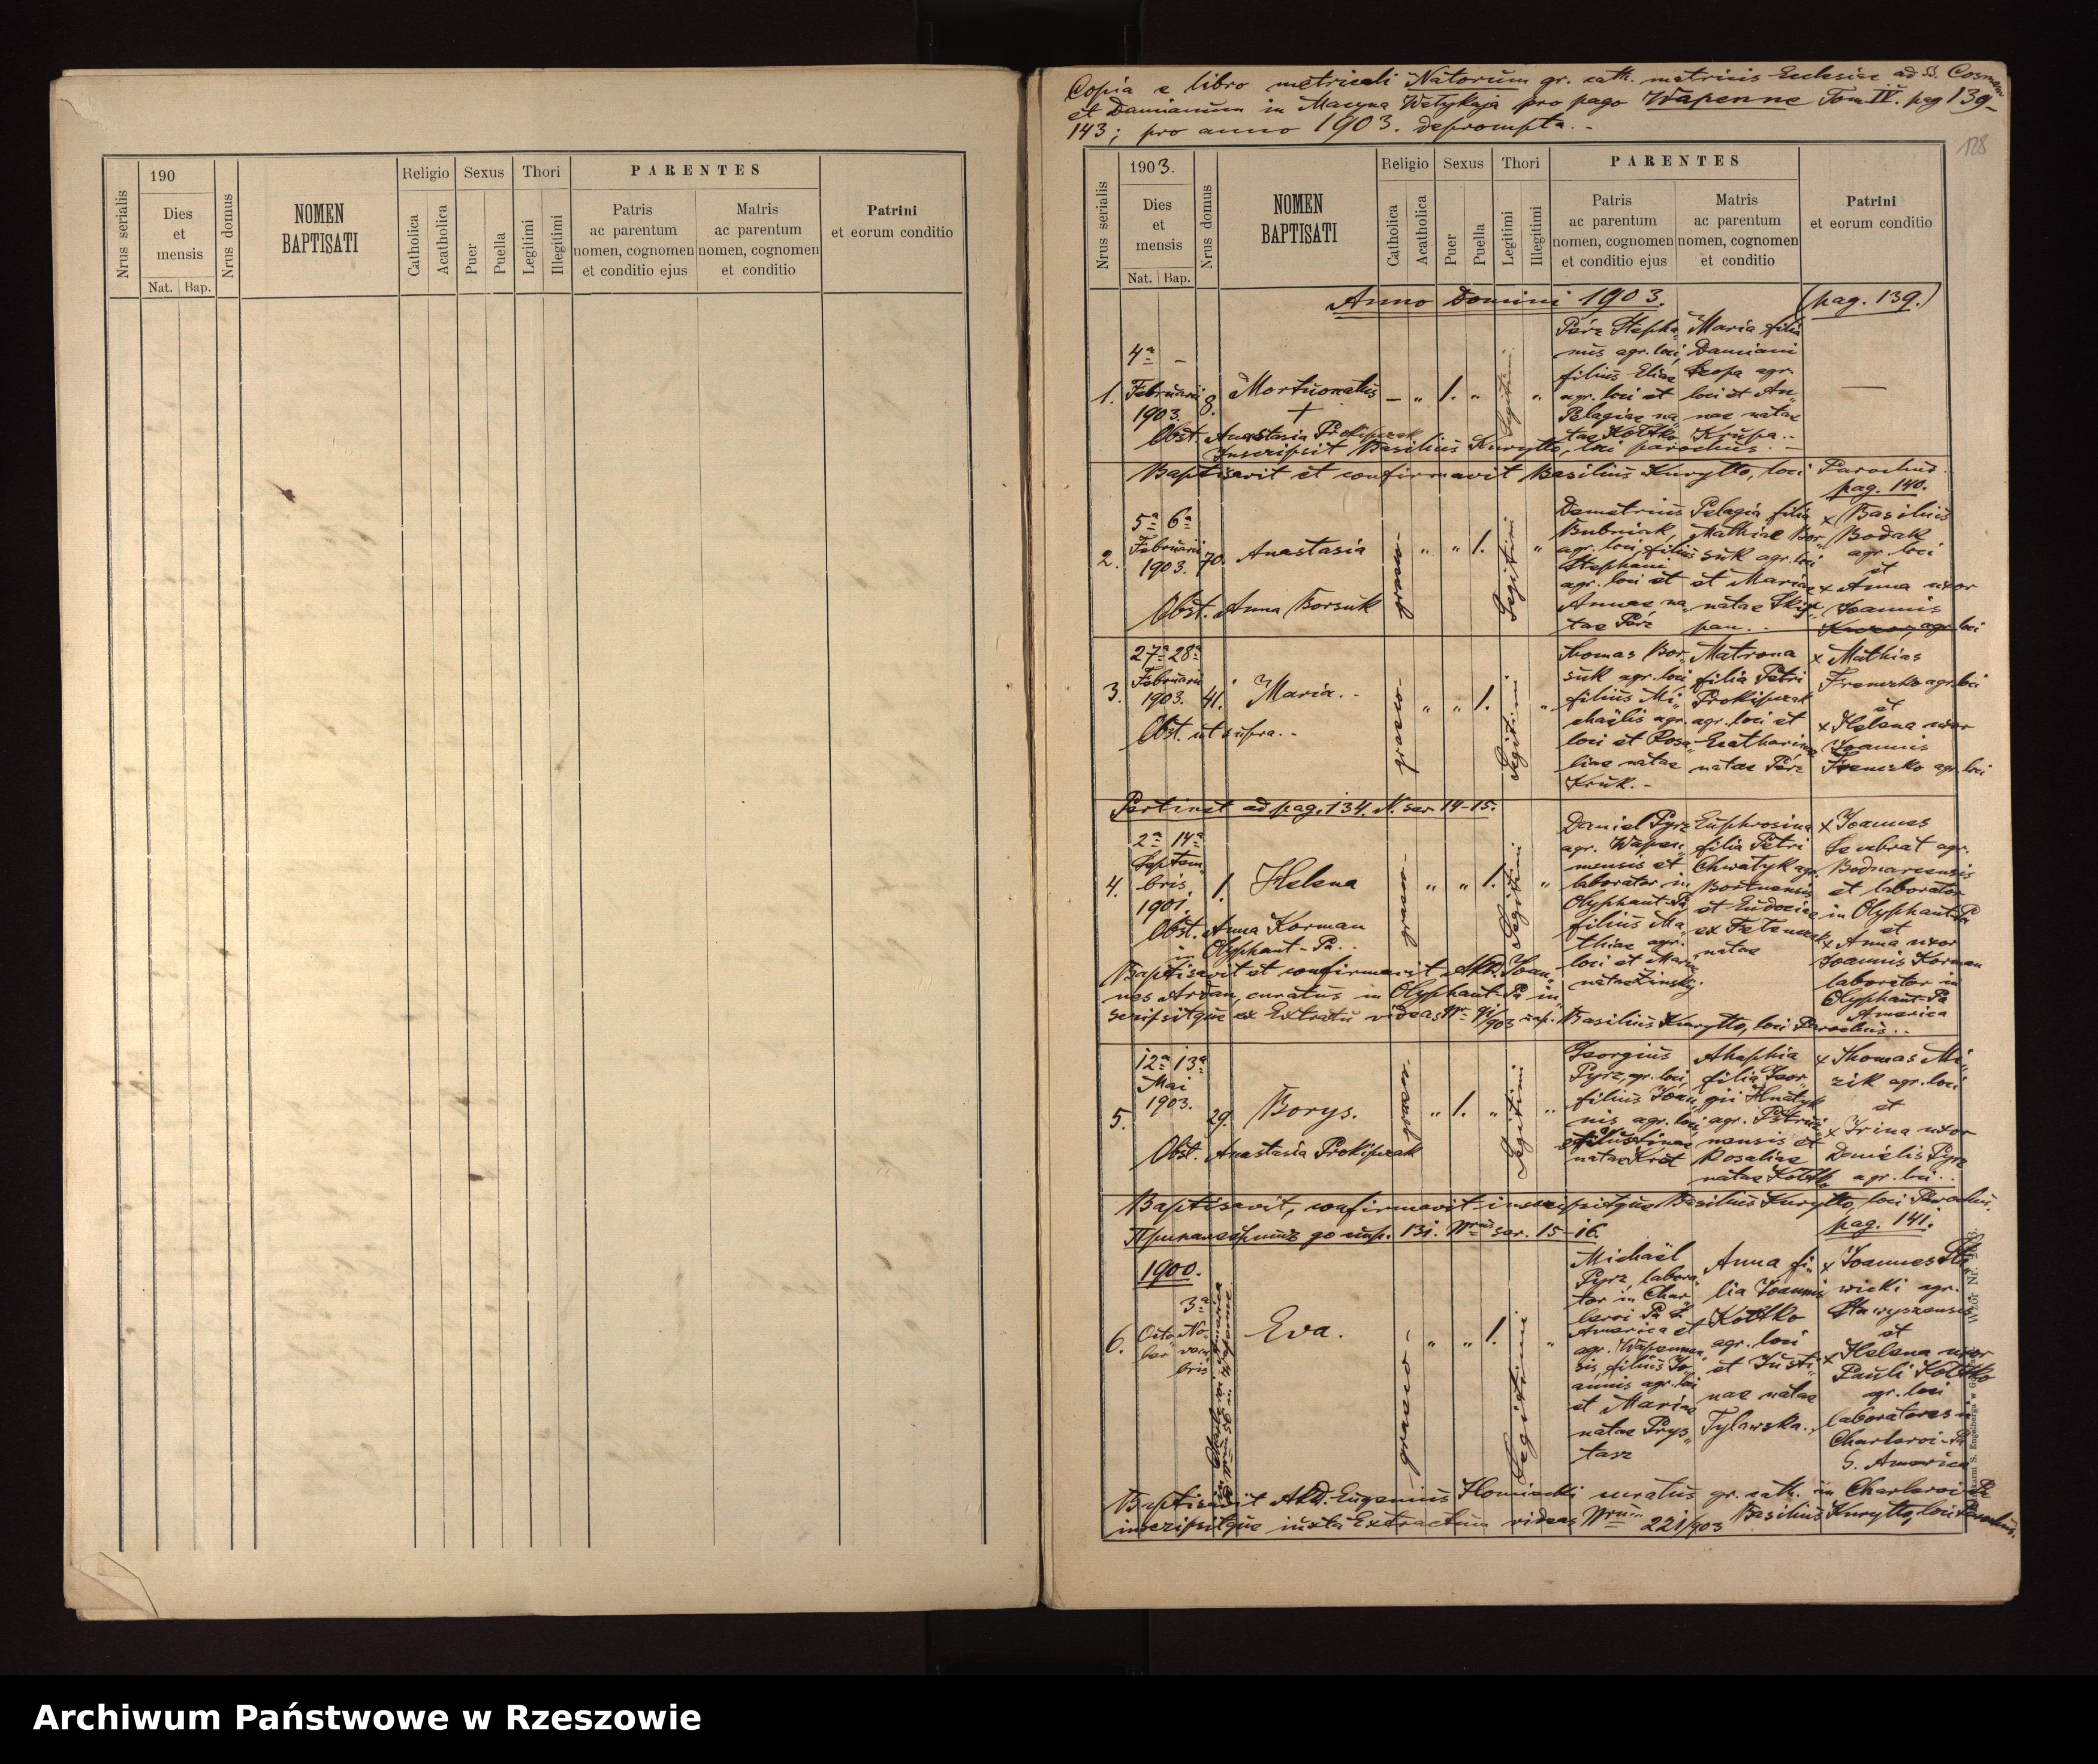 190
Nrus serialis
Dies
et
mensis
Nat. Bap.
Nrus domus
NOMEN
BAPTISATI
Religio
Catholica
Acatholica
Sexus
Puer
Puella
Thori
Legitimi
Illegitimi
PARENTES
Patris
ac parentum
nomen, cognomen
et conditio ejus
Matris
ac parentum
nomen, cognomen
et conditio
Patrini
et eorum conditio
Copia e libro metricali Natorum gr. cath. matricis Ecclesiae ad SS. Cosmam
et Damianum in Macyna Wełykaja pro pago Wapenne Tom IV. pag 139-
143; pro anno 1903. deprompta.-
128
Nrus serialis
1903.
Dies
et
mensis
Nat. Bap.
Nrus domus
NOMEN
BAPTISATI
Religio
Catholica
Acatholica
Sexus
Puer
Puella
Thori
Legitimi
Illegitimi
PARENTES
Patris
ac parentum
nomen, cognomen
et conditio ejus
Matris
ac parentum
nomen, cognomen
et conditio
Patrini
et eorum conditio
Anno Domini 1903. (pag. 139.)
1.
4ª –
Februarii
1903.
8.
Mortuonatus
+
– „ 1. „
Legitimi
„
Pérz Stepha„
nus agr. loci,
filius Eliae
agr. loci et
Pelagiae na„
tae Kotłko
Maria filia
Damiani
Szopa agr.
loci et An„
nae natae
Krupa..
—
Obst. Anastasia Prokipczak
Inscripsit Basilius Kuryłło, loci parochus.-
Baptisavit et confirmavit Basilius Kuryłło, loci Parochus.
pag. 140.
2.
5ª 6ª
Februarii
1903.
70.
Anastasia
graeco-
„ „ 1.
Legitimi
„
Demetrius
Bubniak,
agr. loci, filius
Stephani
agr. loci et
Annae na„
tae Pérz
Pelagia filia
Mathiae Bor„
suk agr. loci
et Mariae
natae Skir„
pan..
x Basilius
Bodak
agr. loci
et
x Anna uxor
Joannis
agr. loci
Obst. Anna Borsuk
3.
27ª 28ª
Februarii
1903.
41.
Maria.-
graeco-
„ „ 1.
Legitimi
„
Thomas Bor„
suk agr. loci
filius Mi„
chaëlis agr.
loci et Rosa„
liae natae
Kruk.-
Matrona
filia Petri
Prokipczak
agr. loci et
Ecatharinae
natae Pérz
x Mathias
Frenczko agr. loci
et
x Helena uxor
Joannis
Frenczko agr. loci
Obst. ut supra.-
Pertinet ad pag. 134. N. ser. 14-15.
4.
2ª 14ª
Septem„
bris
1901.
1.
Helena
graeco-
„ „ 1.
Legitimi
„
Daniel Pyrz
agr. Wapen„
nensis et
laborator in
Olyphant-Pa
filius Ma„
thiae agr.
loci et Mariae
natae Zinsky.
Euphrosina
filia Petri
Chwałyk agr.
Bortnensis
et Eudociae
ex
natae
x Joannes
agr.
Bodnarcensis
et laborator
in Olyphant-Pa
et
x Anna uxor
Joannis Korman
laborator in
Olyphant-Pa
America
Obst. Anna Korman
in Olyphant-Pa..
Baptisavit et confirmavit Joan„
nes Ardan, curatus in Olyphant-Pa in„
scripsitque ex Extractu videas Basilius Kuryłło, loci Parochus..
5.
12ª 13ª
Mai
1903.
29.
Borys.
graeco-
„ 1. „
Legitimi
„
Georgius
Pyrz, agr. loci,
filius Joan„
nis agr. loci
et
natae Kret
Ahaphia
filia Geor„
gii Hnatyk
agr. Pstruż„
nensis et
Rosaliae
natae Kotłko
x Thomas Mi„
zik agr. loci
et
x Irina uxor
Danielis Pyrz
agr. loci..
Obst. Anastasia Prokipczak
Baptisavit, confirmavit inscripsitque Basilius Kuryłło, loci Parochus.
pag. 141.
131. ser. 15-16.
6.
1900.
3ª
Octo„ No„
ber vem„
bris
Eva.
graeco-
„ „ 1.
Legitimi
„
Michaël
Pyrz, labora„
tor in Char„
leroi Pa
America et
agr. Wapennen„
sis, filius Jo„
annis agr. loci
et Mariae
natae Prys„
tasz
Anna fi„
lia Joannis
Kotłko
agr. loci
et Justi„
nae natae
Tylawska..
x Joannes
wicki agr.
Stawyszensis
et
x Helena uxor
Pauli Kotłko
agr. loci
laboratores in
Charleroi-Pa
S. America
Baptisavit Eugenius Homicki curatus gr. cath. in Charleroi Pa
inscripsitque iuxta Extractum videas Nrum 221/903 Basilius Kuryłło, loci Parochus.
Archiwum Państwowe w Rzeszowie